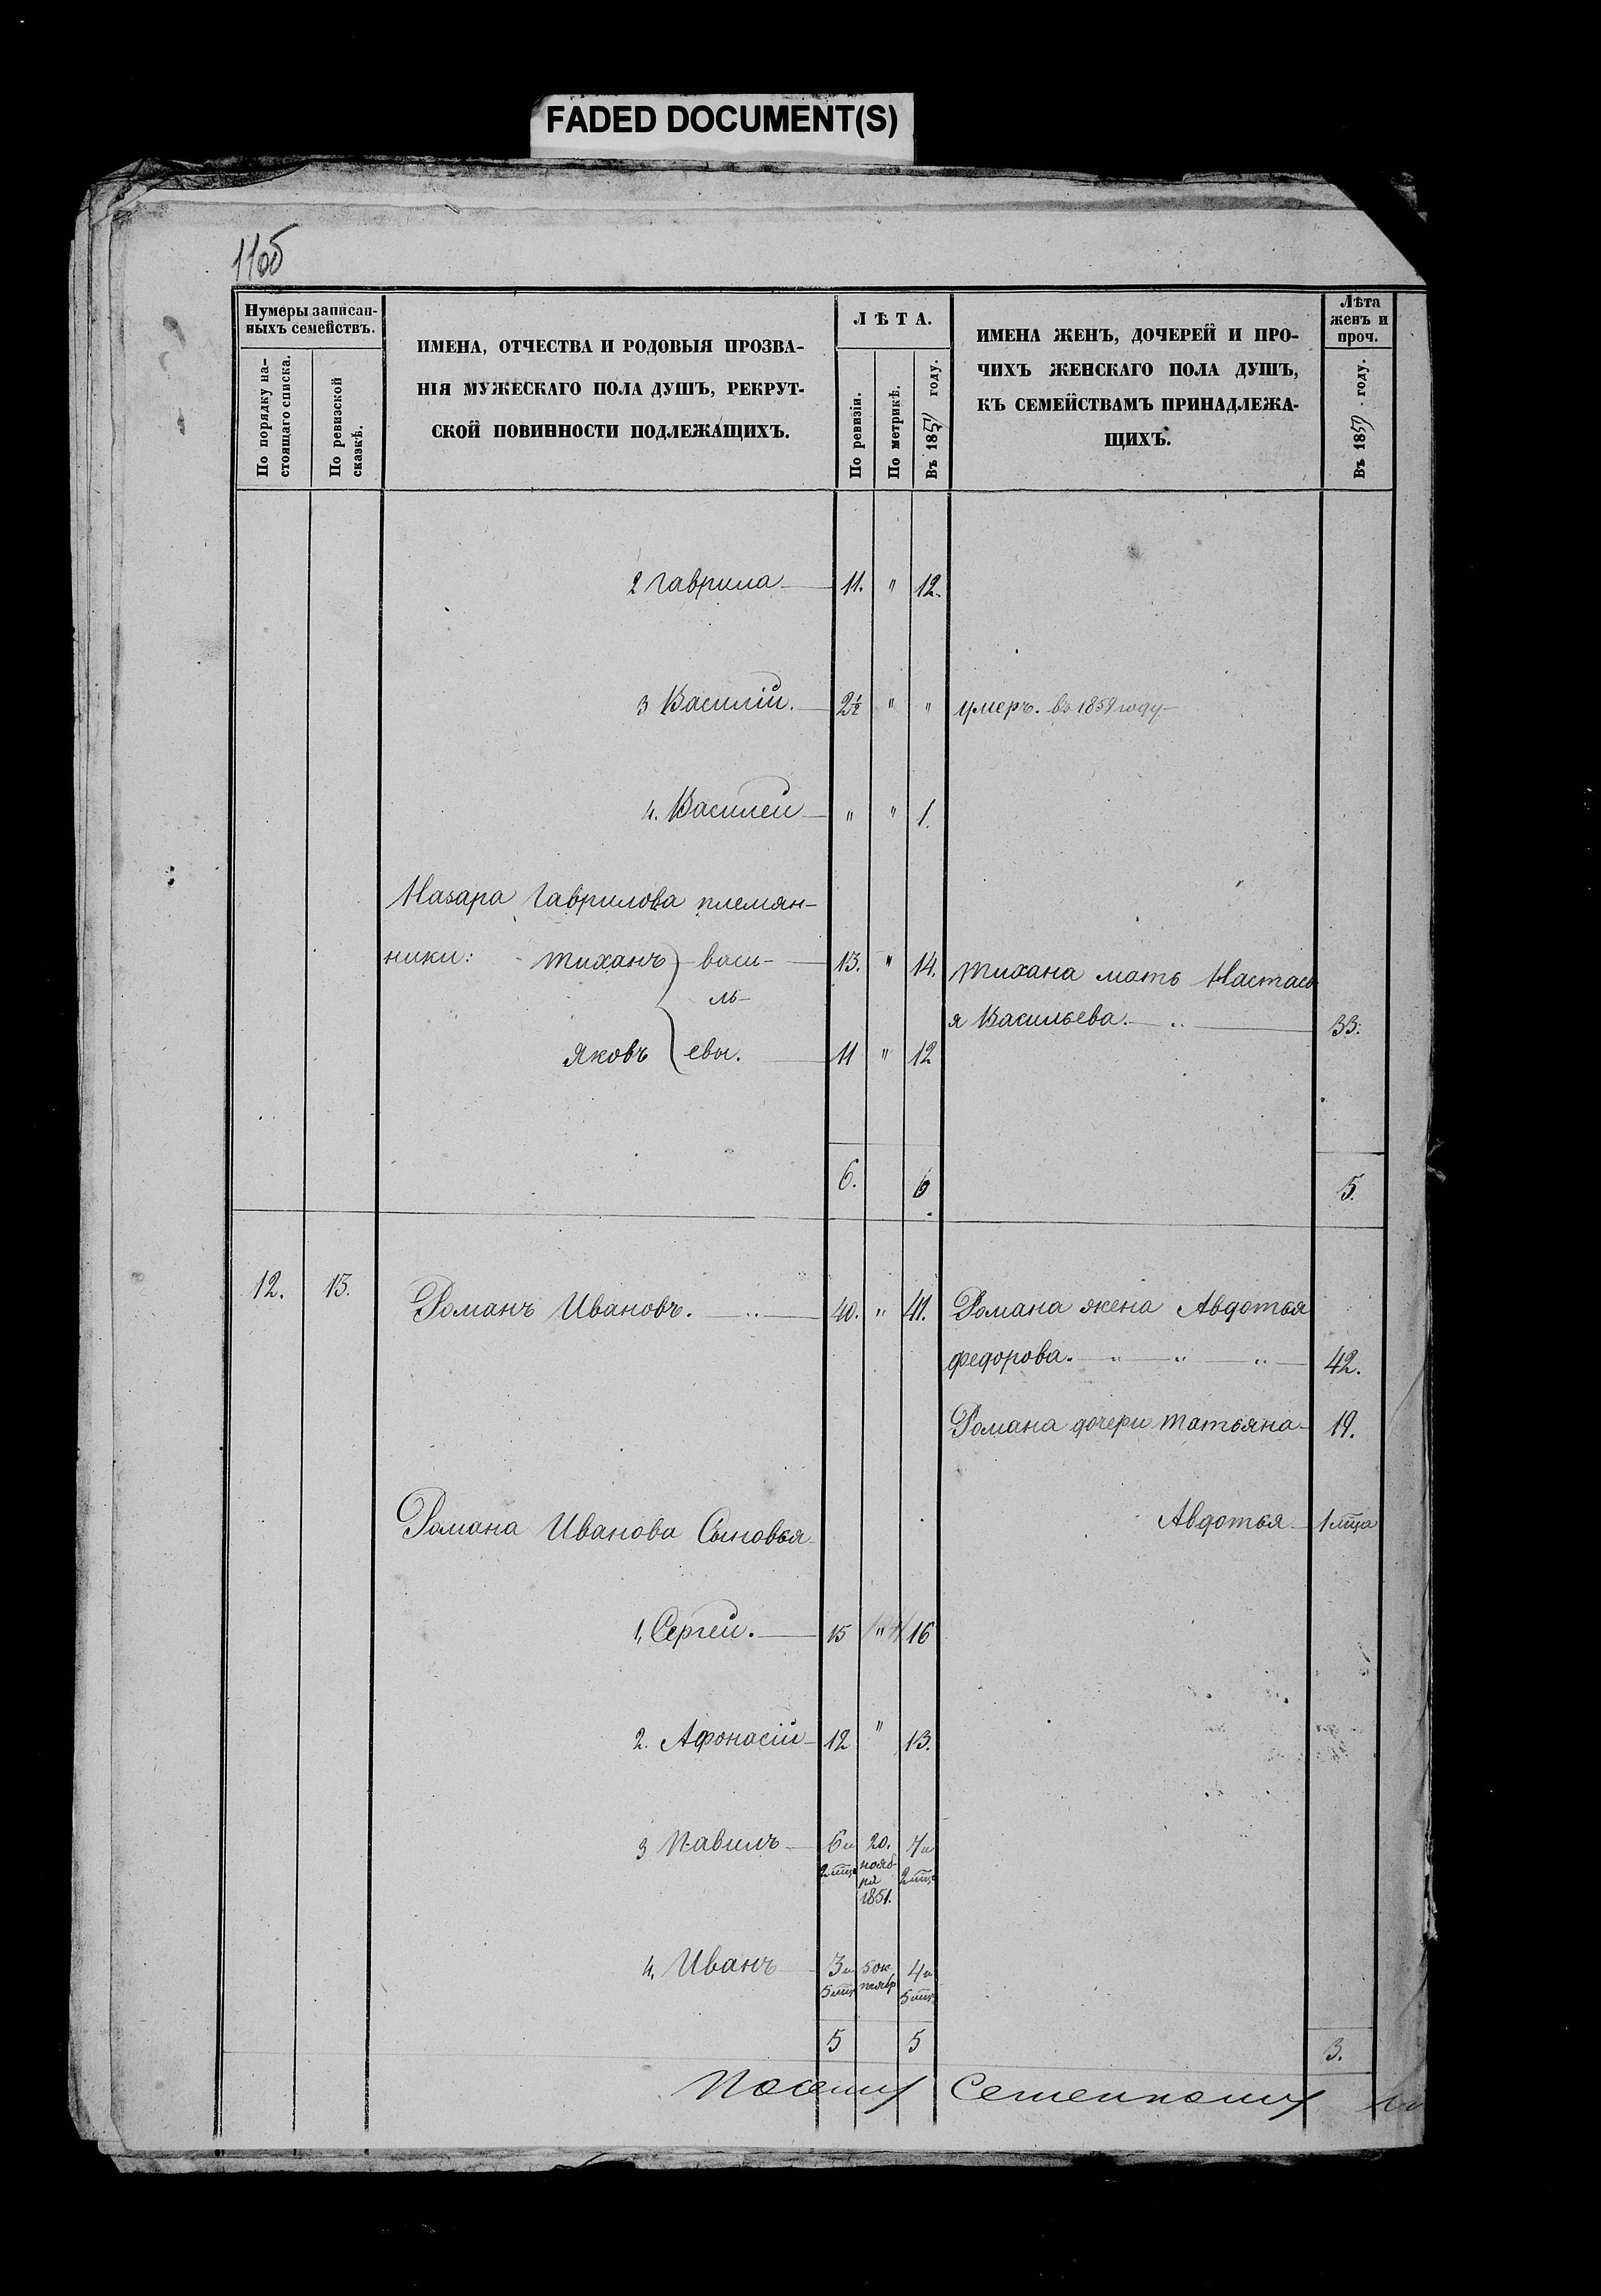 FADED DOCUMENT(S)
Нумеры записан-
ныхъ семействъ.
По порядку на-
стоящаго списка.
По ревизской
сказкѣ.
ИМЕНА, ОТЧЕСТВА И РОДОВЫЯ ПРОЗВА-
НІЯ МУЖЕСКАГО ПОЛА ДУШЪ, РЕКРУТ-
СКОЙ ПОВИННОСТИ ПОДЛЕЖАЩИХЪ.
ЛѢТА.
По ревизіи.
По метрикѣ.
Въ 1859 году.
ИМЕНА ЖЕНЪ, ДОЧЕРЕЙ И ПРО-
ЧИХЪ ЖЕНСКАГО ПОЛА ДУШЪ,
КЪ СЕМЕЙСТВАМЪ ПРИНАДЛЕЖА-
ЩИХЪ.
Лѣта
женъ и
проч.
Въ 1859 году.
2 Гаврила 11. " 12.
3 Василій. 2½ " " умеръ. въ 1859 году
4. Василей " " 1.
Назара Гаврилова племян-
ники: Тиханъ васи- 13. " 14. Тихана мать Настась
ль-
я Васильева. 33.
Яковъ евы. 11 " 12
6. 6 5.
12. 13. Романъ Ивановъ. 40. " 41. Романа жена Авдотья
Федорова. " " " 42.
Романа дочери Татьяна 19.
Романа Иванова Сыновья
Авдотья 1 мца
1, Сергей. 15 " 16
2. Афонасій 12 " 13.
3 Павилъ 6 и 20. 7 и
2 мца нояб- 2 мца
ря
1851.
4. Иванъ 3 и 5 ок 4 и
5 мца тябр 5 мца
5 5 3.